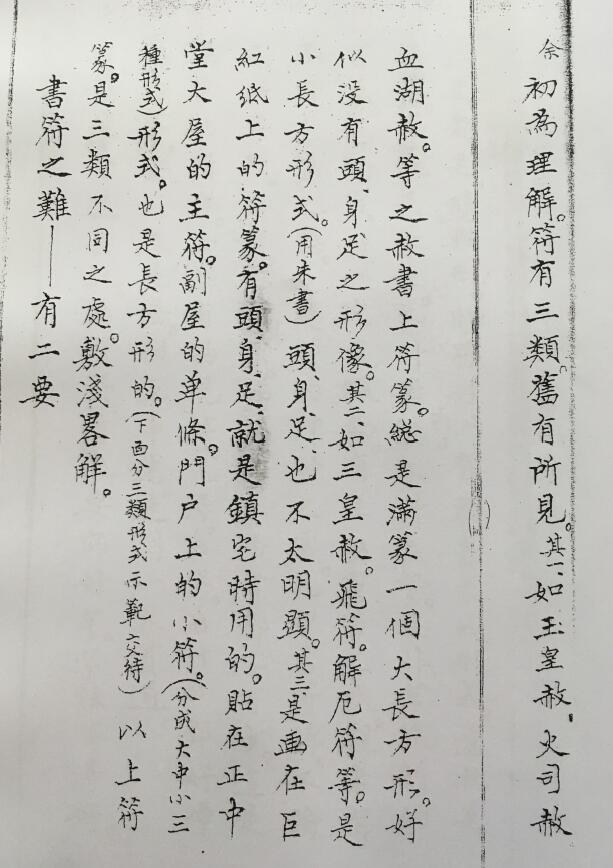 余初為理解。符有三類。舊有所見。其一、如玉皇赦、火司赦
血湖赦。等之赦書上符篆。縂是满篆一個大長方形。好
似没有頭、身足之形像。其二、如三皇赦。飛符。解厄符等。是
小長方形式。(用朱書)頭、身、足、也不太明顕。其三、是画在巨
紅纸上的符篆。有頭、身、足、就是鎮宅時用的。貼在正中
堂大屋的主符。副屋的单條。門户上的小符。(分成大中小三
種形式)形式。也是長方形的。(下面分三類形式示範交待)以上符
篆。是三類不同之處。敷淺畧解。
書符之難——有二要